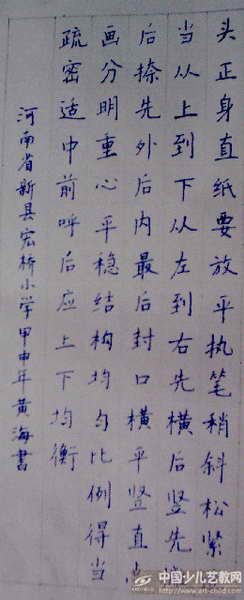 头正身直纸要放平执笔稍斜松紧
当从上到下从左到右先横后竖先
后捺先外后内最后封口横平竖直
画分明重心平稳结构均匀比例得当
疏密适中前呼后应上下均衡
河南省新县宏桥小学甲申年黄海书
中国少儿艺教网
www.art-child.com